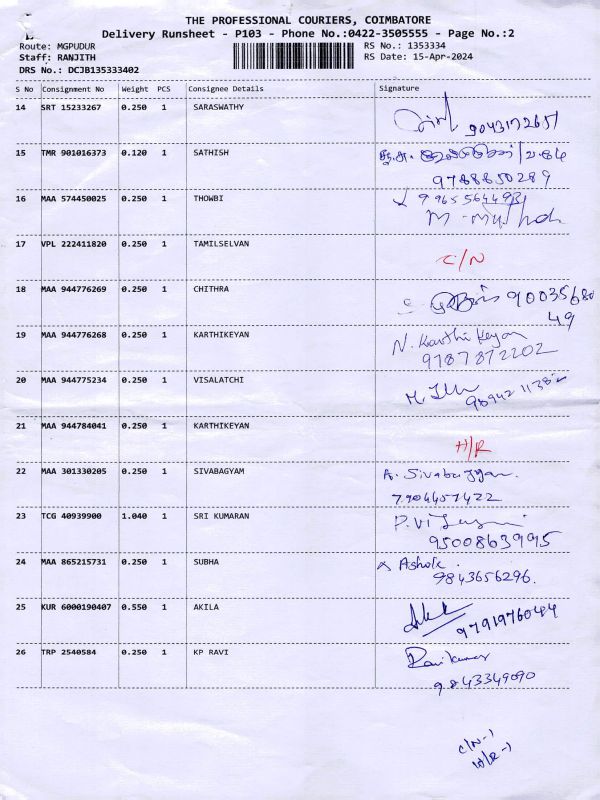 THE PROFESSIONAL COURIERS, COIMBATORE
Delivery Runsheet - P103 - Phone No.:0422-3505555 - Page No.:2
Route: MGPUDUR
RS No.: 1353334
Staff: RANJITH
RS Date: 15-Apr-2024
DRS No.: DCJB135333402
S No Consignment No Weight PCS Consignee Details Signature
14 SRT 15233267 0.250 1 SARASWATHY
15 TMR 901016373 0.120 1 SATHISH
9788850289
16 MAA 574450025 0.250 1 THOWBI
17 VPL 222411820 0.250 1 TAMILSELVAN
C/N
18 MAA 944776269 0.250 1 CHITHRA
90035680
49
19 MAA 944776268 0.250 1 KARTHIKEYAN N. Karthikeyan
9787872202
20 MAA 944775234 0.250 1 VISALATCHI
21 MAA 944784041 0.250 1 KARTHIKEYAN
H/R
22 MAA 301330205 0.250 1 SIVABAGYAM A. Sivabagyam
7904457422
23 TCG 40939900 1.040 1 SRI KUMARAN
9500863995
24 MAA 865215731 0.250 1 SUBHA Ashok.
9843656296.
25 KUR 6000190407 0.550 1 AKILA
9791976044
26 TRP 2540584 0.250 1 KP RAVI Ravikumar
9843349090
C/N-1
H/R-1